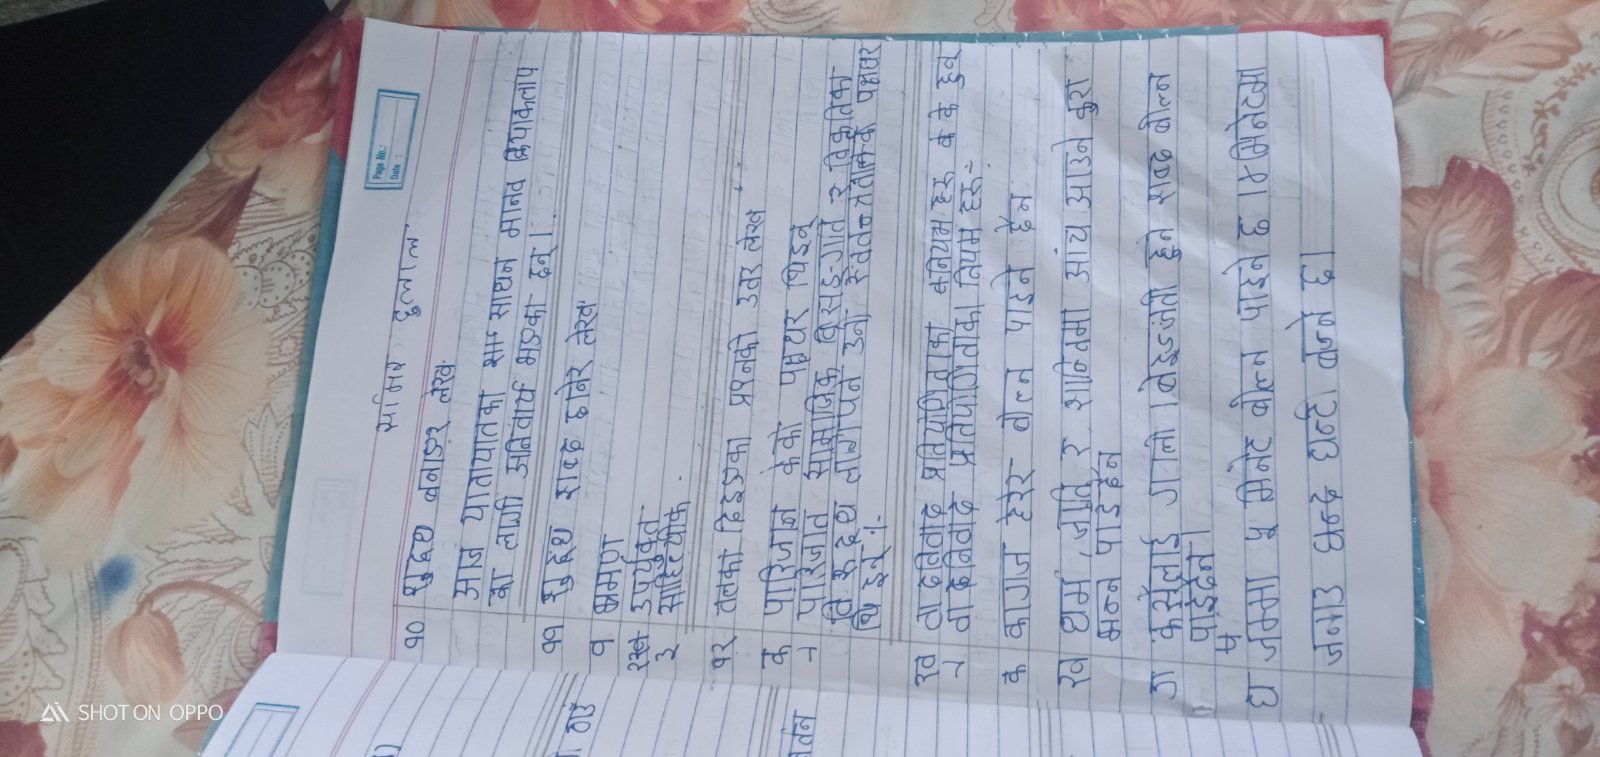 Page No.:
Date :
सुलाल
१० शुद्ध बनाइर लेख
आज यातायातका साधन मानव क्रियाकलाप
का लागी अनिवार्य भइका छन् ।
११ शुद्ध शब्द छानेर लेख
१ भ्रमण
२ उपर्युक्त
३ साहित्यीक
१२ तलका दिइएका प्रश्नको उतर लेख
क पारिजात केको पक्षधर थिइन्
→ पारिजात सामाजिक विसङ्गति र विकृतिका
विरुद्ध लागेपनि उनी स्वतन्त्रताके पक्षधर
थिइन् ।
ख वादविवाद प्रतियोगिताका नियम हरु के के हुन्
→ वादविवाद प्रतियोगिताका नियम हरु:-
क कागज हेरेर बोल्न पाइने छैन
ख धर्म, जाति र शान्तिमा आंच आउने कुरा
भन्न पाइदैन
ग कसैलाई गाली बेइज्जती हुने शब्द बोल्न
पाइदैन ।
घ जम्मा ५ मिनेट बोल्न पाइने छ । ४ मिनेटमा
जनाउ घन्टी बज्ने छ।
SHOT ON OPPO